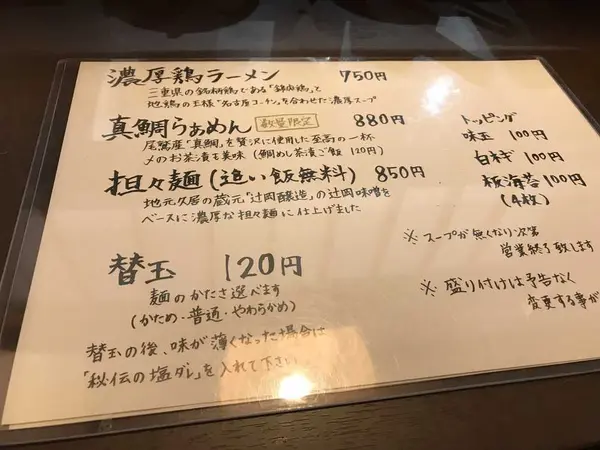 濃厚鶏ラーメン 750円
三重県の銘柄鶏である「錦爽鶏」と
地鶏の王様"名古屋コーチン"を合わせた濃厚スープ
真鯛らぁめん 数量限定 880円
尾鷲産"真鯛"を贅沢に使用した至高の一杯
〆のお茶漬も美味 (鯛めし茶漬ご飯 120円)
担々麺(追い飯無料) 850円
地元久居の蔵元「辻岡醸造」の辻岡味噌を
ベースに濃厚な担々麺に仕上げました
替玉 120円
麺のかたさ選べます
(かため・普通・やわらかめ)
替玉の後、味が薄くなった場合は
「秘伝の塩ダレ」を入れて下さい
トッピング
味玉 100円
白ネギ 100円
板海苔 100円
(4枚)
※スープが無くなり次第
営業終了致します
※盛り付けは予告なく
変更する事が